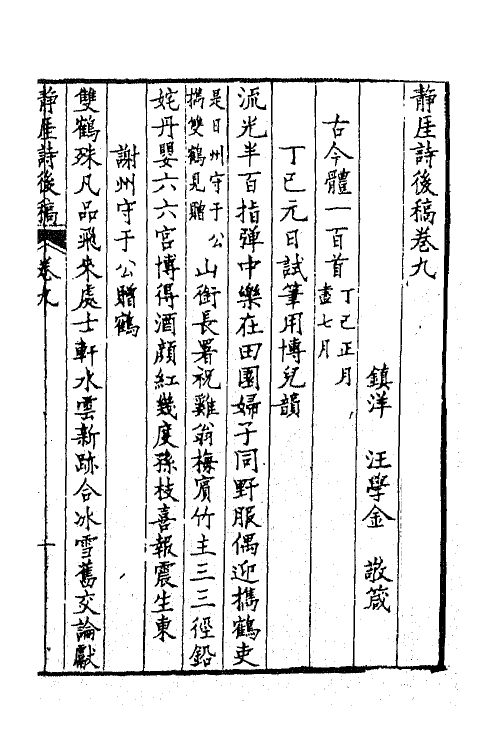 靜厓詩後稿卷九
鎮洋 汪學金 敬箴
古今體一百首丁巳正月盡七月
丁巳元日試筆用博兒韻
流光半百指彈中樂在田園婦子同野服偶迎攜鶴吏
是日州守于公攜雙鶴見贈山銜長署祝雞翁梅賓竹主三三徑鉛
姹丹嬰六六宮博得酒顏紅幾度孫枝喜報震生東
謝州守于公贈鶴
雙鶴殊凡品飛來處士軒水雲新跡合冰雪舊交論獻
靜厓詩後稿 卷九 一